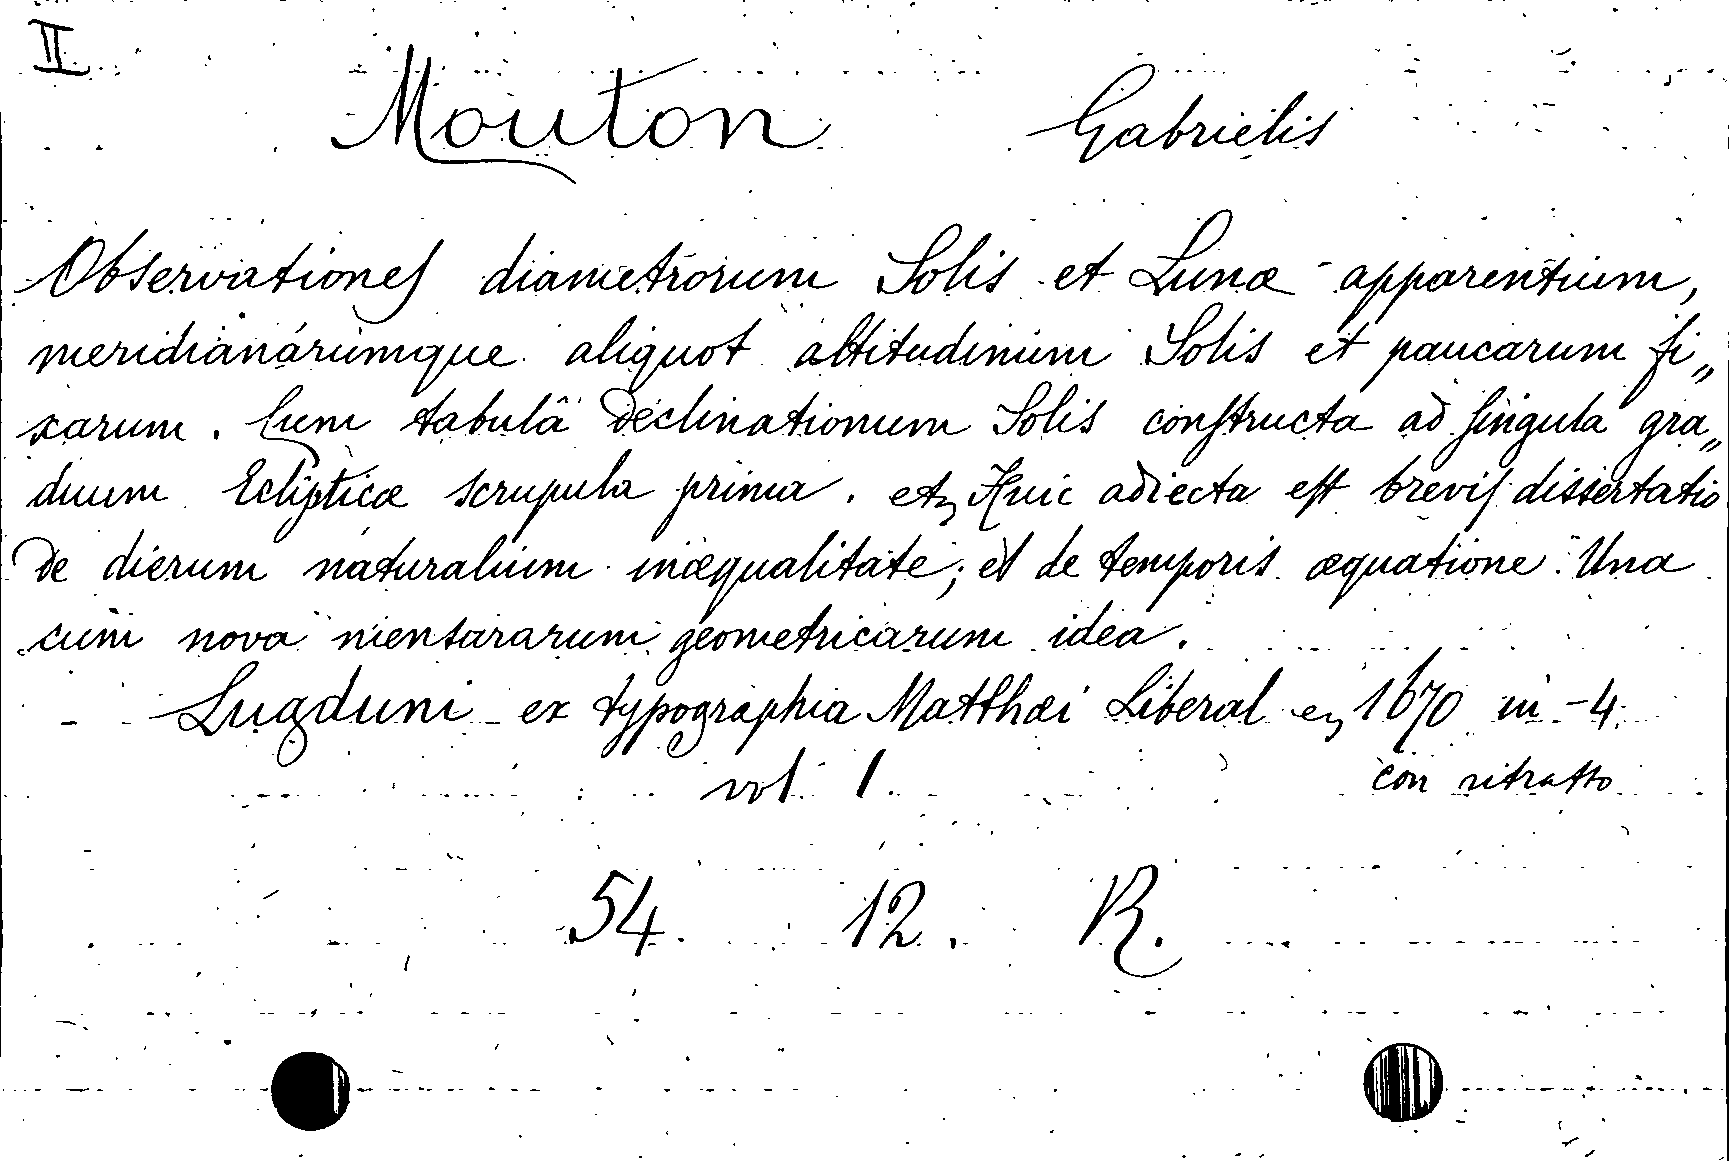 II
Mouton Gabrielis
Observationes diametrorum Solis et Lunæ apparentium,
meridianarumque aliquot altitudinum Solis et paucarum fi„
xarum. Cum tabulâ declinationum Solis constructa ad singula gra„
duum Eclipticæ scrupula prima. etz Huic adiecta est brevis dissertatio
de dierum naturalium inæqualitate; et de temporis æquatione. Una
cum nova mensurarum geometricarum idea.
Lugduni - ex typographia Matthæi Liberal ez 1670 in-4.
vol 1. con ritratto
54. 12. R.